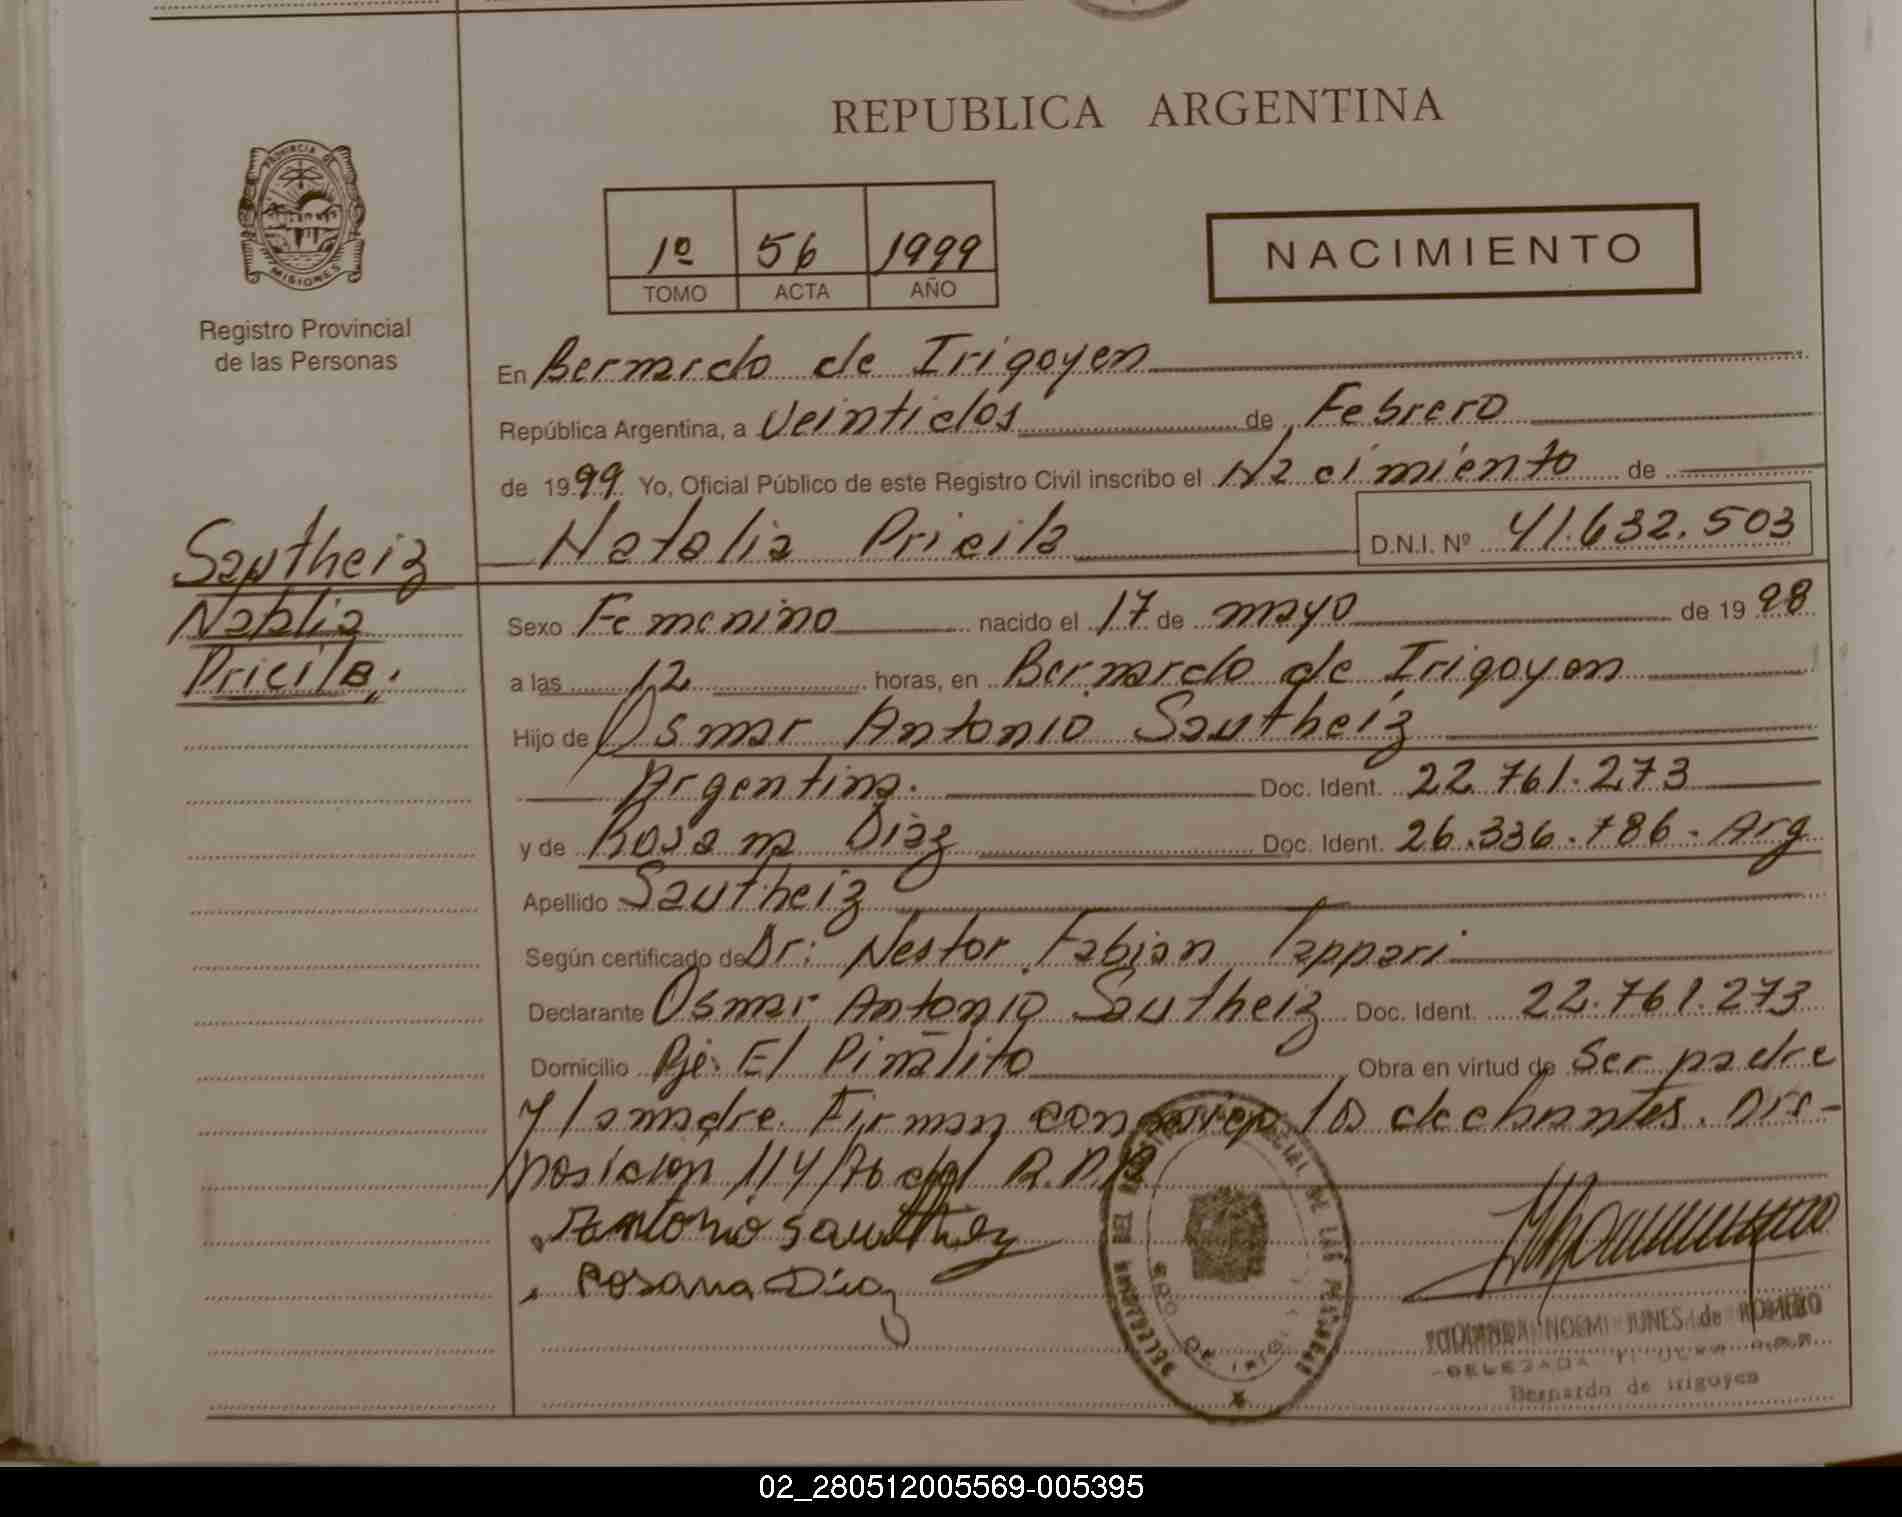 REPUBLICA ARGENTINA
PROVINCIA DE
MISIONES
Registro Provincial
de las Personas
1º 56 1999
TOMO ACTA AÑO
NACIMIENTO
En Bernardo de Irigoyen
República Argentina, a Veintidos de Febrero
de 1999 Yo, Oficial Público de este Registro Civil inscribo el Nacimiento de
Natalia Pricila D.N.I. Nº 41.632.503
Sautheiz
Natalia
Pricila.
Sexo Femenino nacido el 17 de mayo de 1998
a las 12 horas, en Bernardo de Irigoyen
Hijo de Osmar Antonio Sautheiz
Argentina. Doc. Ident. 22.761.273
y de Rosana Diaz Doc. Ident. 26.336.786 - Arg
Apellido Sautheiz
Según certificado de Dr: Nestor Fabian Tappari
Declarante Osmar Antonio Sautheiz Doc. Ident. 22.761.273
Domicilio Pje: El Pinalito Obra en virtud de Ser padre
y la madre. Firman los Dis-
posicion 114/76 del R.P.P.
Antonio Sautthez
Rosana Diaz
NOEMI JUNES de ROMERO
DELEGADA
Bernardo de Irigoyen
02_280512005569-005395